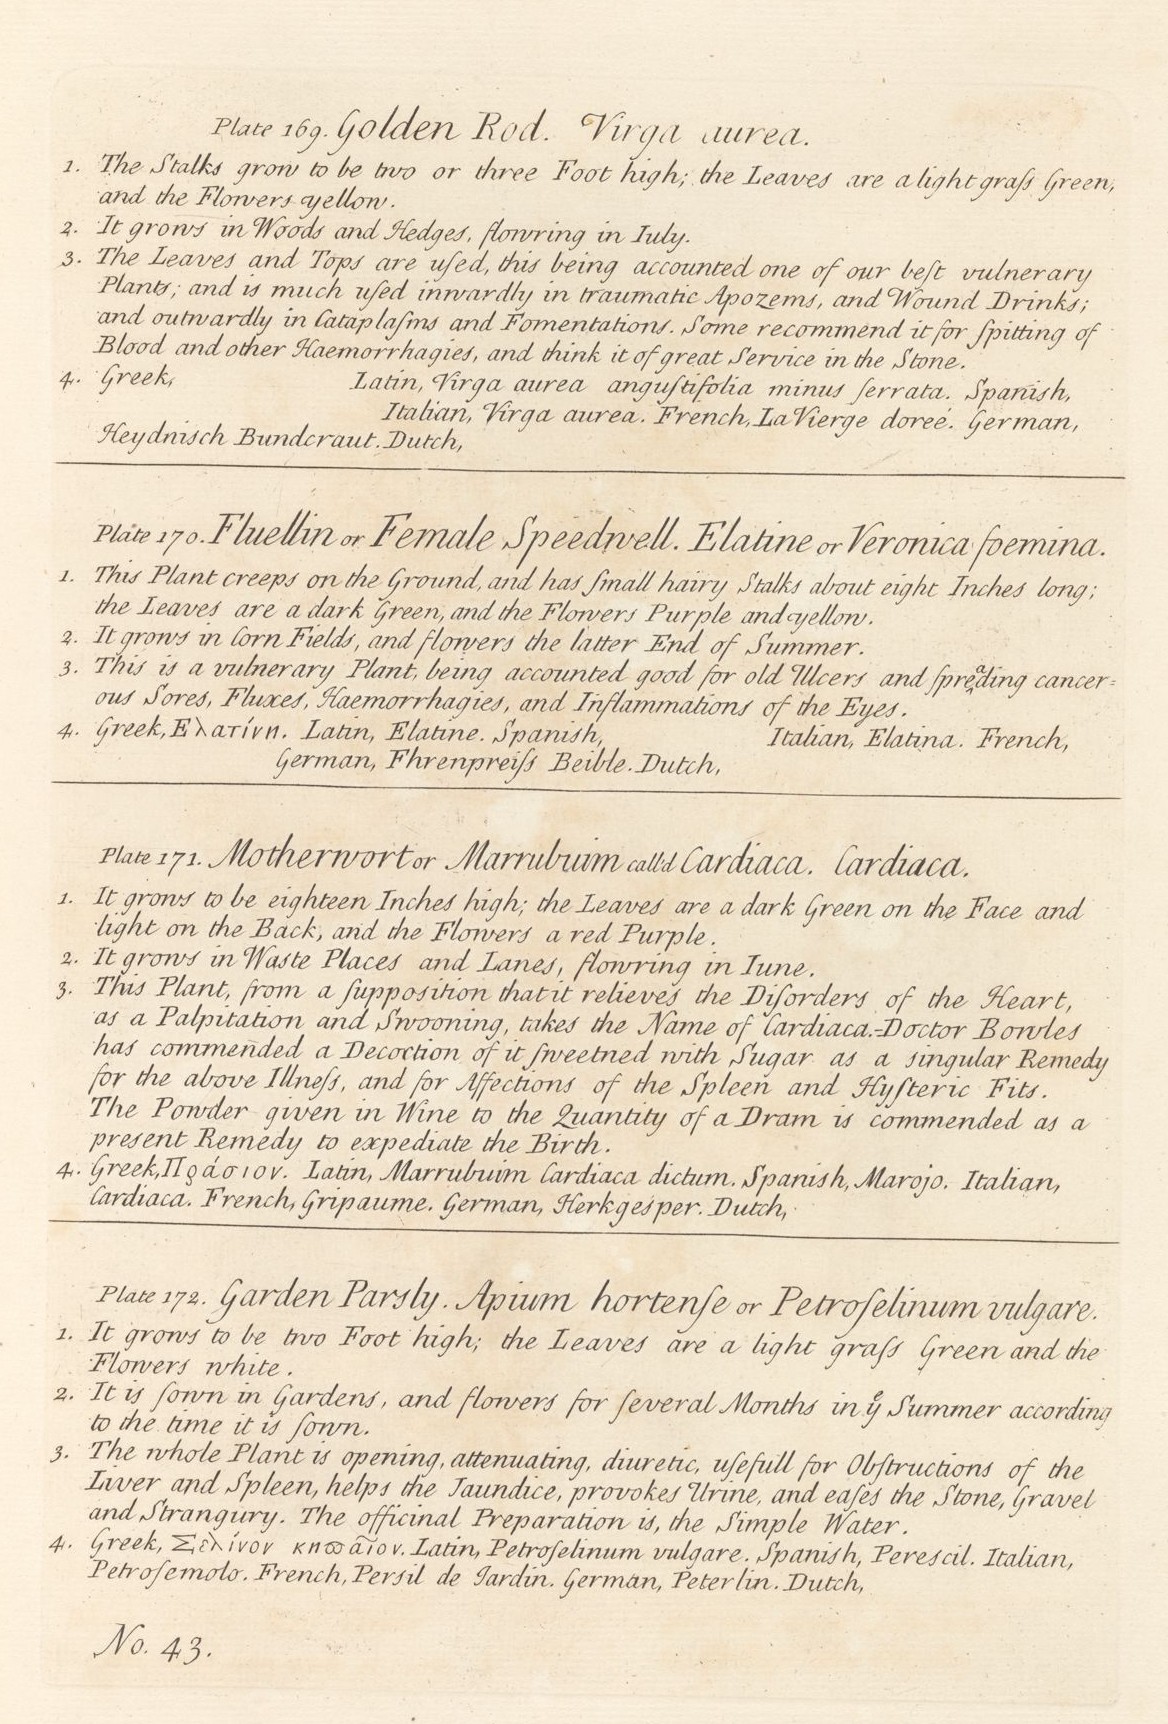 Plate 169. Golden Rod. Virga aurea.
1. The Stalks grow to be two or three Foot high; the Leaves are a light graſs Green,
and the Flowers yellow.
2. It grows in Woods and Hedges, flowring in Iuly.
3. The Leaves and Tops are uſed, this being accounted one of our beſt vulnerary
Plants; and is much uſed inwardly in traumatic Apozems, and Wound Drinks;
and outwardly in Cataplaſms and Fomentations. Some recommend it for ſpitting of
Blood and other Haemorrhagies, and think it of great Service in the Stone.
4. Greek, Latin, Virga aurea anguſtifolia minus ſerrata. Spanish,
Italian, Virga aurea. French, La Vierge doreé. German,
Heydnisch Bundcraut. Dutch,
Plate 170. Fluellin or Female Speedwell. Elatine or Veronica foemina.
1. This Plant creeps on the Ground, and has ſmall hairy Stalks about eight Inches long;
the Leaves are a dark Green, and the Flowers Purple and yellow.
2. It grows in Corn Fields, and flowers the latter End of Summer.
3. This is a vulnerary Plant, being accounted good for old Ulcers and ſpreading cancer=
ous Sores, Fluxes, Haemorrhagies, and Inflammations of the Eyes.
4. Greek, Ελατίνη. Latin, Elatine. Spanish, Italian, Elatina. French,
German, Fhrenpreiſs Beible. Dutch,
Plate 171. Motherwort or Marrubuim call'd Cardiaca. Cardiaca.
1. It grows to be eighteen Inches high; the Leaves are a dark Green on the Face and
light on the Back, and the Flowers a red Purple.
2. It grows in Waste Places and Lanes, flowring in Iune.
3. This Plant, from a ſuppoſition that it relieves the Diſorders of the Heart,
as a Palpitation and Swooning, takes the Name of Cardiaca.=Doctor Bowles
has commended a Decoction of it ſweetned with Sugar as a singular Remedy
for the above Illneſs, and for Affections of the Spleen and Hyſteric Fits.
The Powder given in Wine to the Quantity of a Dram is commended as a
present Remedy to expediate the Birth.
4. Greek, Πράσιον. Latin, Marrubuim Cardiaca dictum. Spanish, Marojo. Italian,
Cardiaca. French, Gripaume. German, Herkgesper. Dutch,
Plate 172. Garden Parsly. Apium hortenſe or Petroſelinum vulgare.
1. It grows to be two Foot high; the Leaves are a light graſs Green and the
Flowers white.
2. It is ſown in Gardens, and flowers for ſeveral Months in yͤ Summer according
to the time it is ſown.
3. The whole Plant is opening, attenuating, diuretic, uſefull for Obſtructions of the
Liver and Spleen, helps the Jaundice, provokes Urine, and eaſes the Stone, Gravel
and Strangury. The officinal Preparation is, the Simple Water.
4. Greek, Σελίνον κηπαῖον. Latin, Petroſelinum vulgare. Spanish, Perescil. Italian,
Petroſemolo. French, Persil de Jardin. German, Peterlin. Dutch,
No. 43.